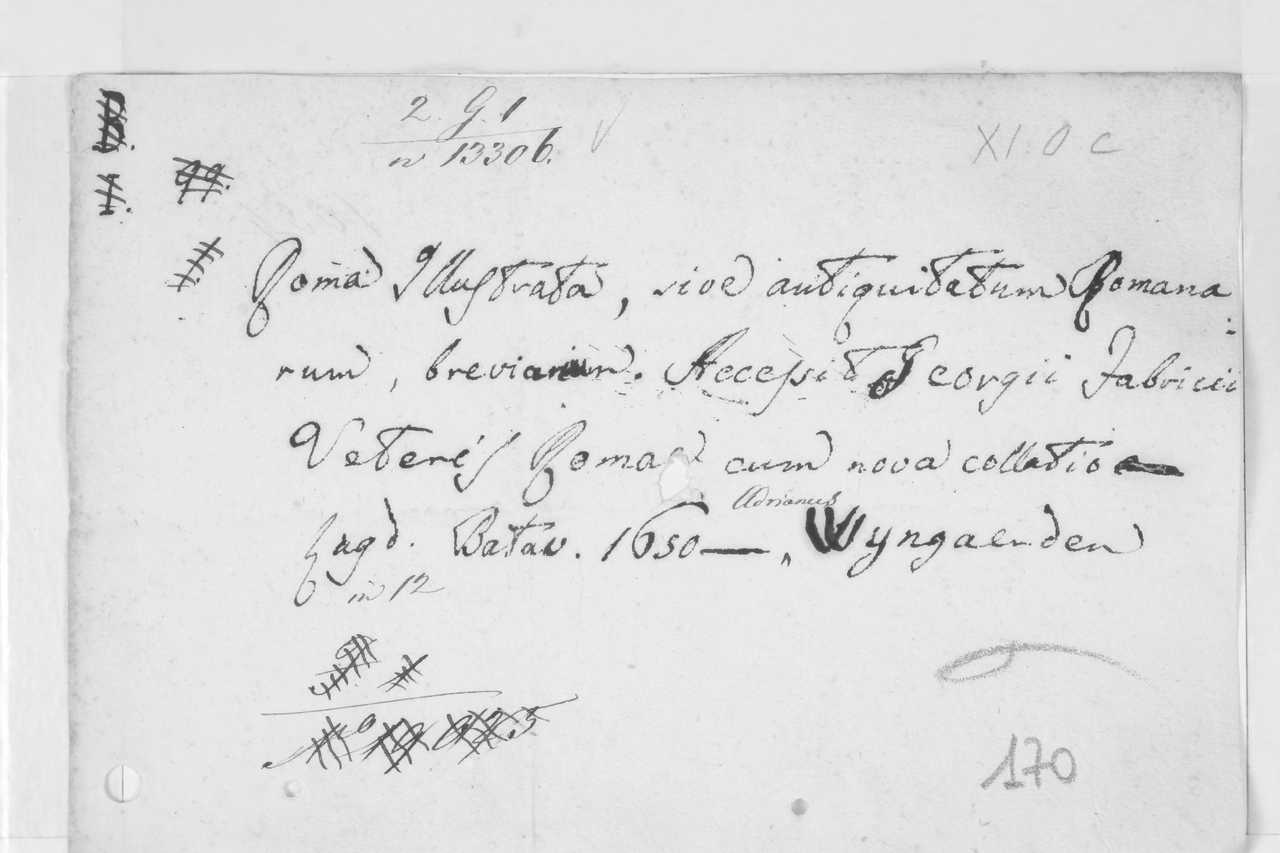 2. G. 1
XI. O C
n 13306.
Roma Illustrata, sive antiquitatum Romana
rum, breviarium. Accessit Georgii Fabricii
Veteris Romae cum nova collatio
Adrianus
Lugd. Batav. 1650 — „ Wyngaerden
in 12
170